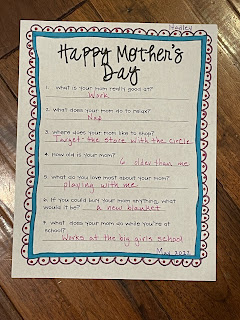 Hadley
Happy Mother's
Day
1. What is your mom really good at?
Work
2. What does your mom do to relax?
Nap
3. Where does your mom like to shop?
Target: the store with the circle
4. How old is your mom?
6 older than me
5. What do you love most about your mom?
playing with me
6. If you could buy your mom anything, what
would it be? a new blanket
7. What does your mom do while you're at
school?
Works at the big girls school
May